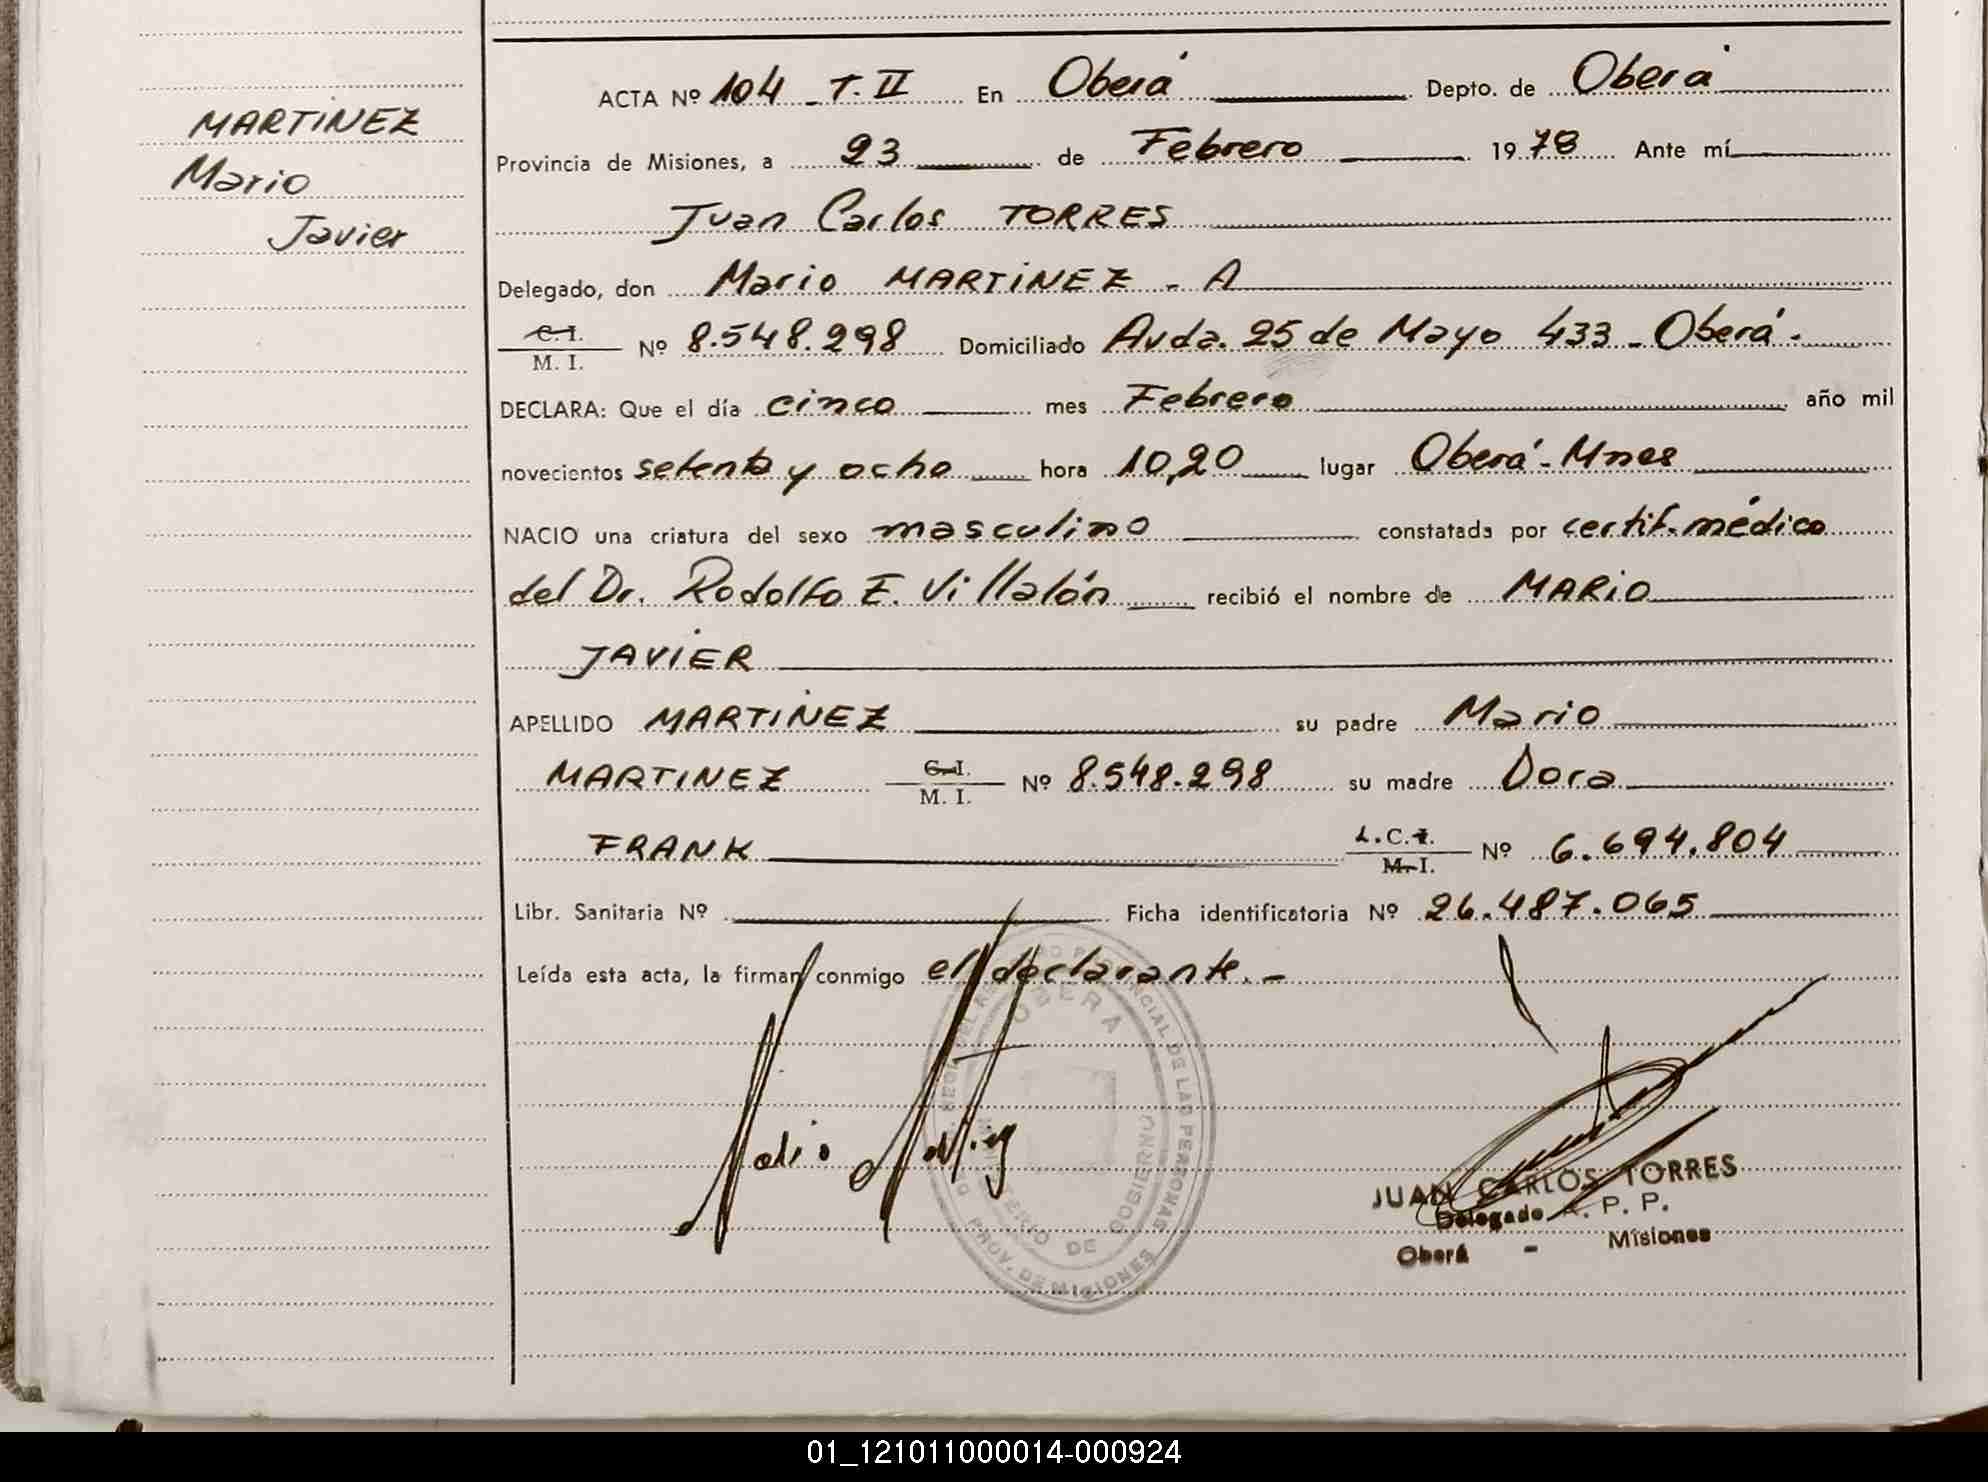 MARTINEZ
Mario
Javier
ACTA Nº 104 - T. II En Oberá Depto. de Oberá
Provincia de Misiones, a 23 de Febrero 1978 Ante mí
Juan Carlos TORRES
Delegado, don Mario MARTINEZ - A
C. I.
M. I. Nº 8.548.298 Domiciliado Avda. 25 de Mayo 433 - Oberá.
DECLARA: Que el día cinco mes Febrero año mil
novecientos setenta y ocho hora 10,20 lugar Oberá - Mnes
NACIO una criatura del sexo masculino constatada por certif. médico
del Dr. Rodolfo E. Villalón recibió el nombre de MARIO
JAVIER
APELLIDO MARTINEZ su padre Mario
MARTINEZ C. I.
M. I. Nº 8.548.298 su madre Dora
FRANK L.C.I.
M. I. Nº 6.694.804
Libr. Sanitaria Nº Ficha identificatoria Nº 26.487.065
Leída esta acta, la firman conmigo el declarante. -
OBERA
PROVINCIAL DE LAS PERSONAS
MINISTERIO DE GOBIERNO
PROV. DE MISIONES
JUAN CARLOS TORRES
Delegado R. P. P.
Oberá - Misiones
01_121011000014-000924